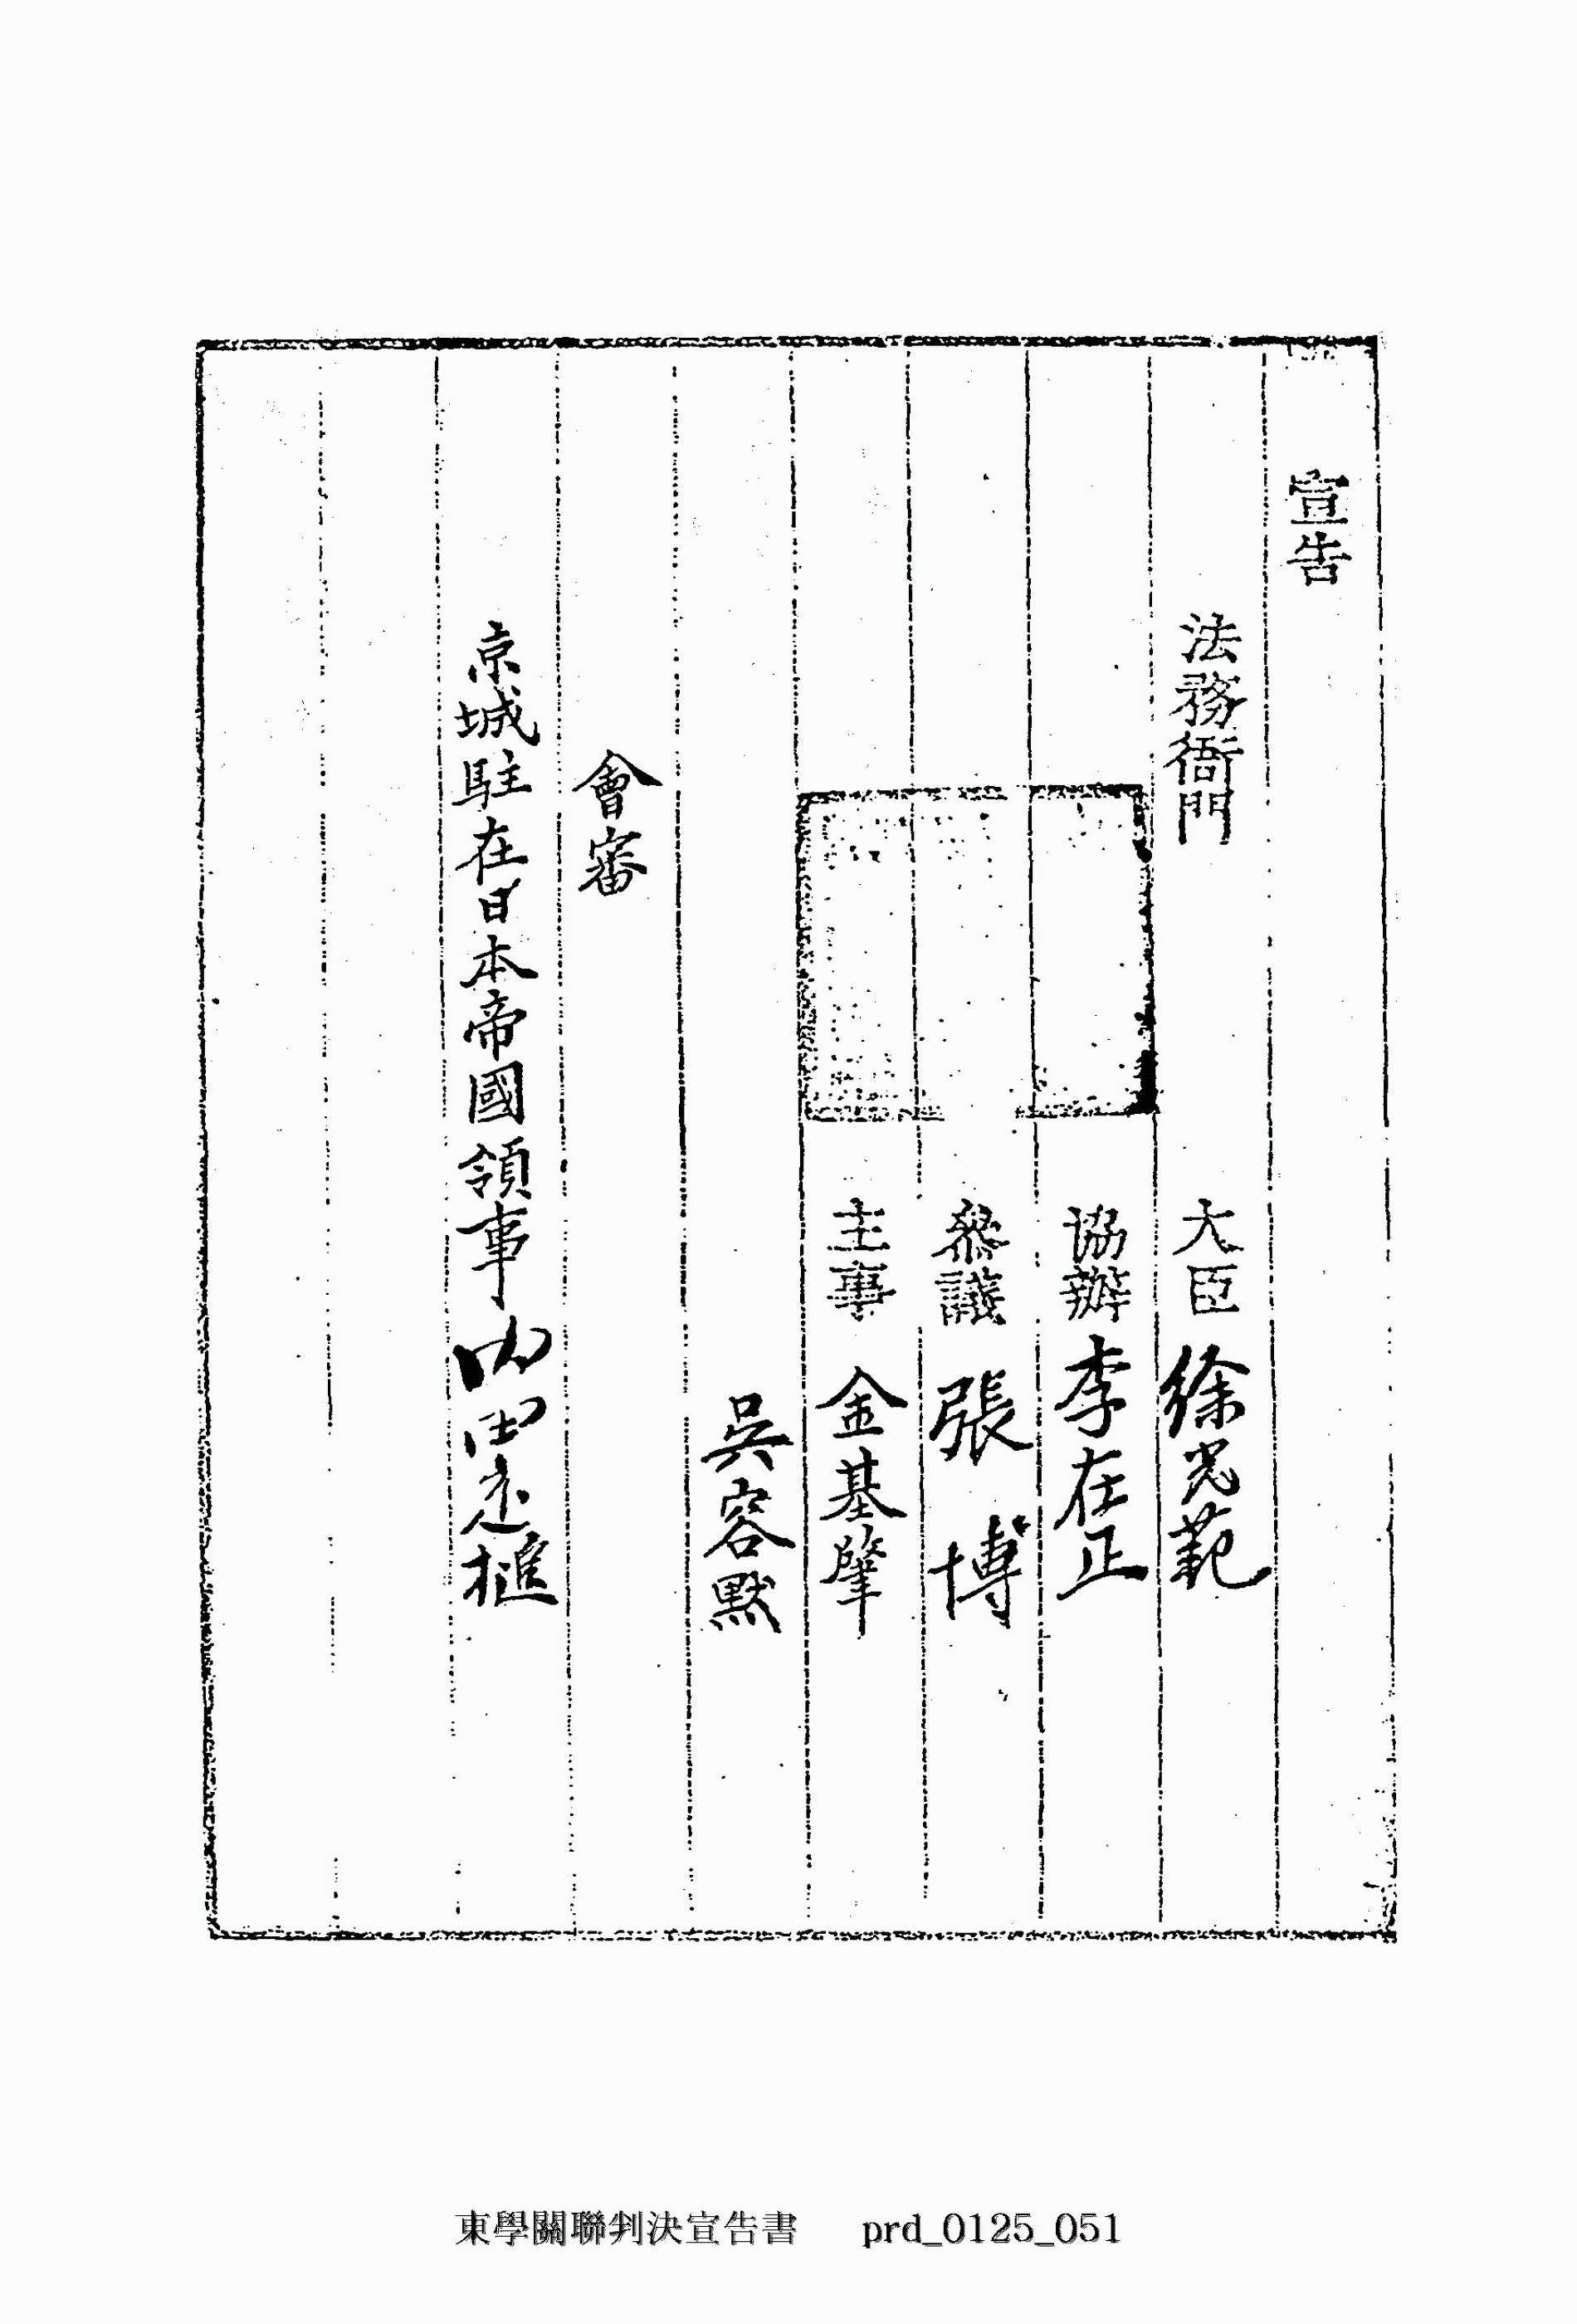 宣告
法務衙門 大臣 徐光範
協辦 李在正
參議 張博
主事 金基肇
吳容默
會審
京城駐在日本帝國領事 内田定槌
東學關聯判決宣告書 prd_0125_051